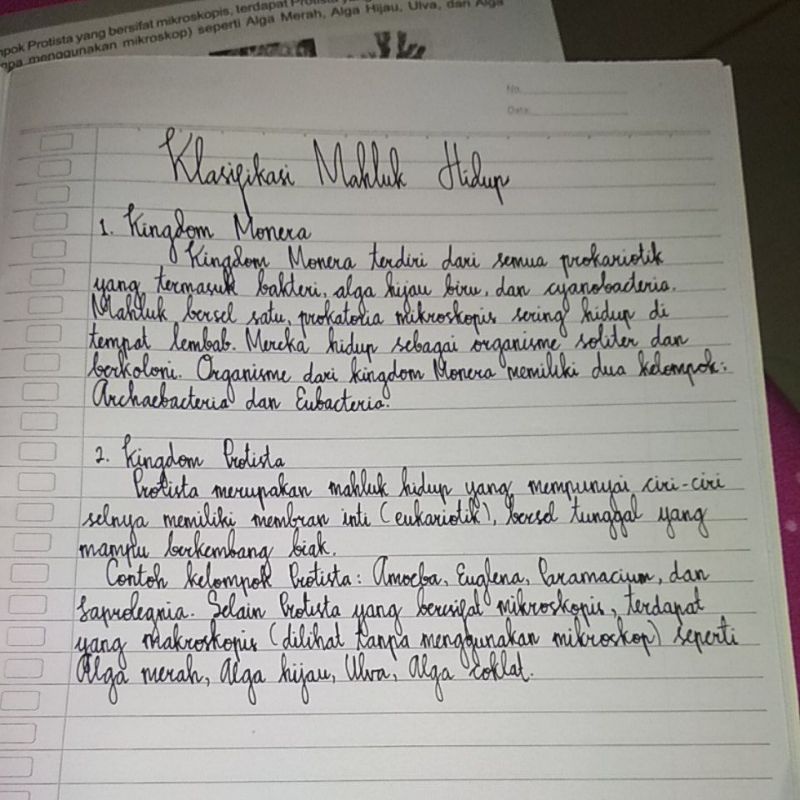 pok Protista yang bersifat mikroskopis, terdapat
menggunakan mikroskop) seperti Alga Merah, Alga Hijau, Ulva, dan Alga
No.
Date
Klasifikasi Mahluk Hidup
1. Kingdom Monera
Kingdom Monera terdiri dari semua prokariotik
yang termasuk bakteri, alga hijau biru, dan cyanobacteria.
Mahluk bersel satu, prokatoria mikroskopis sering hidup di
tempat lembab. Mereka hidup sebagai organisme soliter dan
berkoloni. Organisme dari kingdom Monera memiliki dua kelompok:
Archaebacteria dan Eubacteria.
2. Kingdom Protista
Protista merupakan mahluk hidup yang mempunyai ciri-ciri
selnya memiliki membran inti (eukariotik), bersel tunggal yang
mampu berkembang biak.
Contoh kelompok Protista: Amoeba, Euglena, Paramacium, dan
Saprolegnia. Selain Protista yang bersifat mikroskopis, terdapat
yang makroskopis (dilihat tanpa menggunakan mikroskop) seperti
Alga merah, Alga hijau, Ulva, Alga coklat.